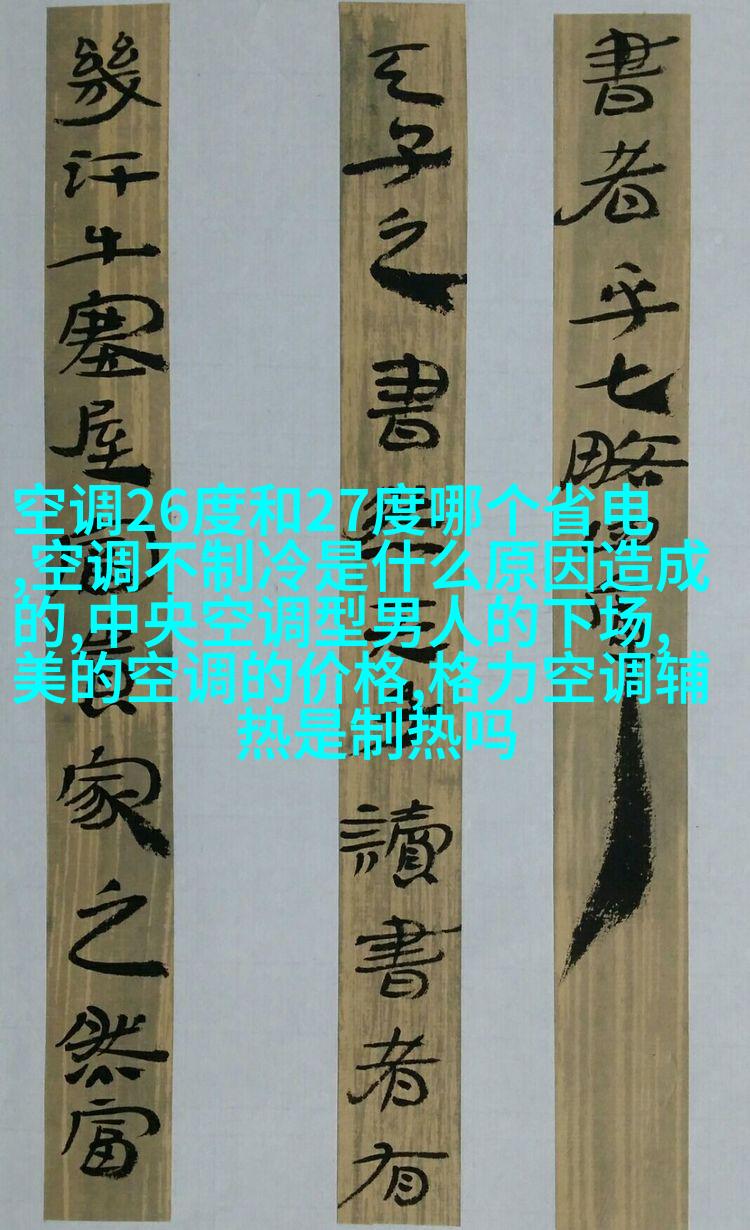 書者乎七略
天子之書然天子讀書者有
幾汗牛塞屋富貴家之然富
空调26度和27度哪个省电
,空调不制冷是什么原因造成
的,中央空调型男人的下场,
美的空调的价格,格力空调辅
热是制热吗